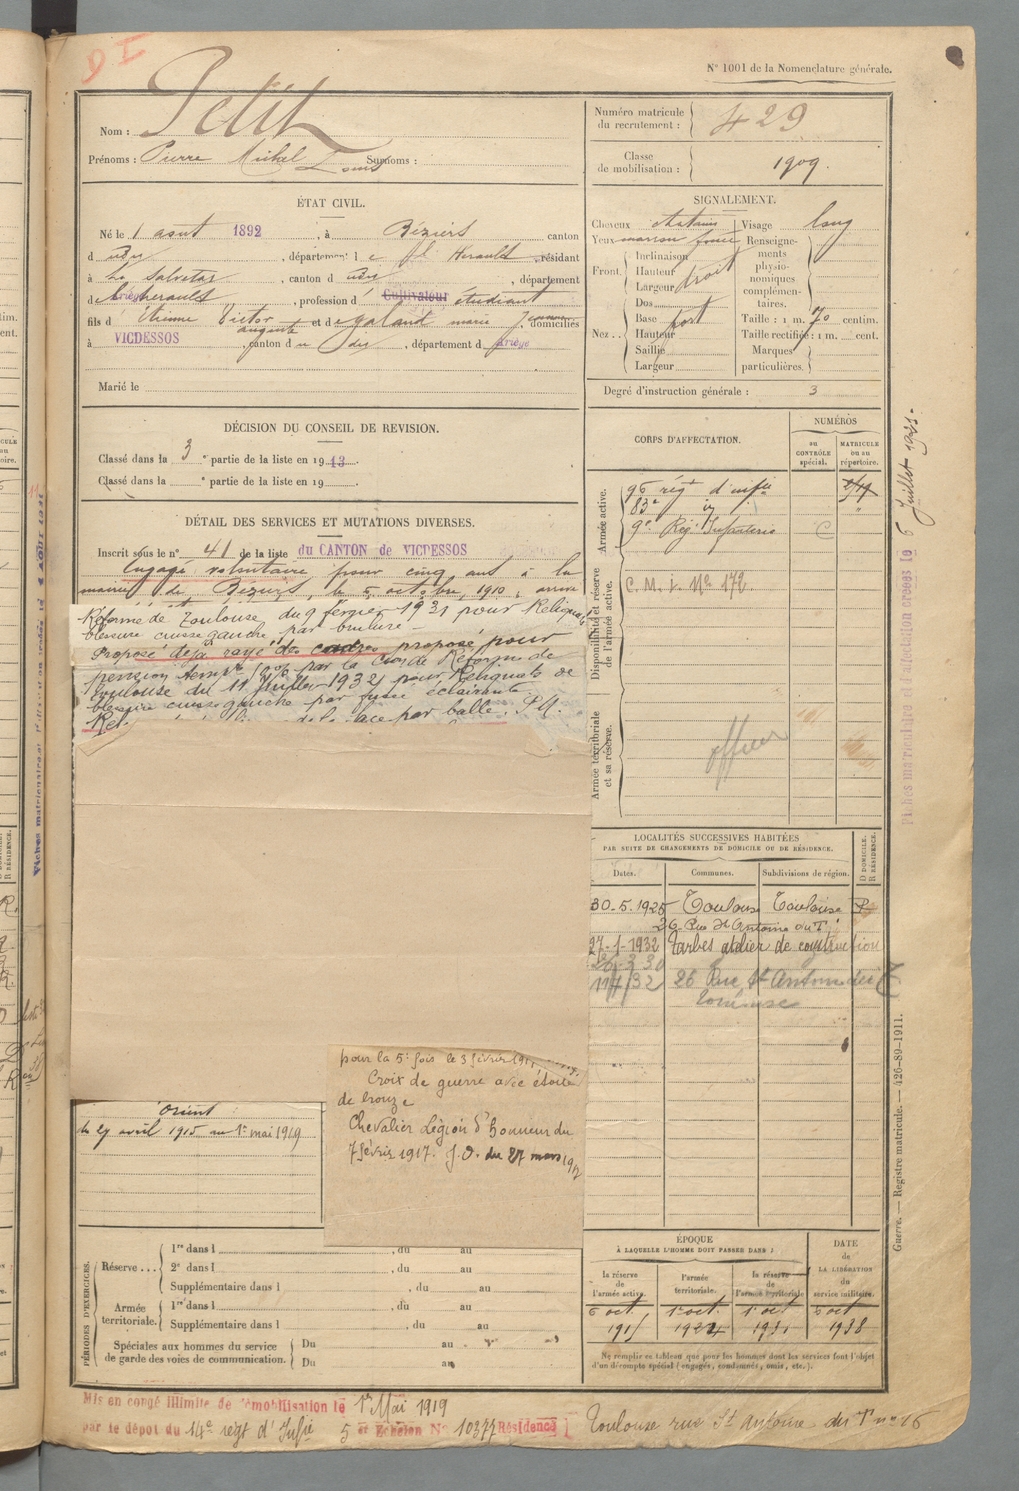 D I
N° 1001 de la Nomenclature générale.
Nom : Petit
Prénoms : Pierre Michel Louis Surnoms :
Numéro matricule du recrutement : 429
Classe de mobilisation : 1909.
ÉTAT CIVIL.
Né le 1 aout 1892, à Béziers canton
d udu, département de l'Herault, résidant
à La Salvetat, canton d udu, département
de l'herault, profession d Cultivateur étudiant
fils d'Etienne Victor auguste et de galant marie J. domiciliés
à VICDESSOS, canton du du, département d Ariège
Marié le
SIGNALEMENT.
Cheveux chatains
Yeux marron foncé
Front. Inclinaison
Hauteur
Largeur droit
Nez.. Dos
Base fort
Hauteur
Saillie
Largeur
Visage long
Renseignements physionomiques complémentaires.
Taille : 1 m. 70 centim.
Taille rectifiée : 1 m. cent.
Marques particulières.
Degré d'instruction générale : 3
DÉCISION DU CONSEIL DE REVISION.
Classé dans la 3e partie de la liste en 1913.
Classé dans la e partie de la liste en 19
CORPS D'AFFECTATION.
NUMÉROS
au CONTRÔLE spécial.
MATRICULE ou au répertoire.
Armée active.
96 régt d'infie
83e
9e Rég. Infanterie
Disponibilité et réserve de l'armée active.
C.M.I. No 172
Armée territoriale et sa réserve.
officier
DÉTAIL DES SERVICES ET MUTATIONS DIVERSES.
Inscrit sous le n° 41 de la liste du CANTON de VICDESSOS
Engagé volontaire pour cinq ans à la
mairie de Béziers, le 5 octobre, 1910,
Réforme de Toulouse du 9 février 1931 pour Reliquat
blessure cuisse gauche par brulure
Proposé déjà rayé des cadres proposé pour
pension temp. 10% par la Cion de Réforme de
Toulouse du 11 Juillet 1932 pour Reliquats de
blessure cuisse gauche par fusée éclairante
face par balle. P.A.
LOCALITÉS SUCCESSIVES HABITÉES
PAR SUITE DE CHANGEMENTS DE DOMICILE OU DE RÉSIDENCE.
Dates. Communes. Subdivisions de région. D DOMICILE. R RÉSIDENCE.
30.5.1925 Toulouse Toulouse R
26 Rue St Antoine du T
27-1-1932 Tarbes atelier de construction
26.3.30
11/7/32 26 Rue St Antoine du T
Toulouse
pour la 5e fois le 3 février
Croix de guerre avec étoile
de bronze
Chevalier Légion d'Honneur du
7 février 1917. J.O. du 27 mars 1917
Orient
du 27 avril 1915 au 1er mai 1919
PÉRIODES D'EXERCICES.
Réserve... 1re dans l , du au
2e dans l , du au
Supplémentaire dans l , du au
Armée territoriale. 1re dans l , du au
Supplémentaire dans l , du au
Spéciales aux hommes du service de garde des voies de communication. Du au
Du au
ÉPOQUE
À LAQUELLE L'HOMME DOIT PASSER DANS :
la réserve de l'armée active. 6 oct. 1915
l'armée territoriale. 1er oct. 1924
la réserve de l'armée territoriale 1er oct 1931
DATE de LA LIBÉRATION du service militaire. 6 oct 1938
Ne remplir ce tableau que pour les hommes dont les services font l'objet d'un décompte spécial (engagés, condamnés, omis, etc.).
Mis en congé illimité de démobilisation le 1er Mai 1919
par le dépôt du 14e regt d'Infie 5 er Echelon N° 10377 Résidence Toulouse rue St Antoine du T n° 16
Fiches matricules et d'affectation créées le 6 Juillet
Guerre. — Registre matricule. — 426-89-1911.